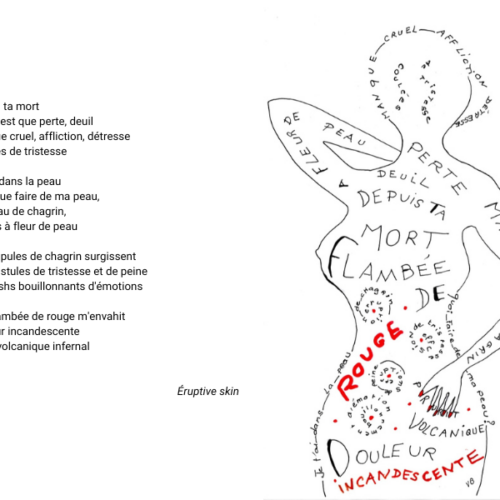 ta mort
est que perte, deuil
e cruel, affliction, détresse
es de tristesse
dans la peau
que faire de ma peau,
au de chagrin,
s à fleur de peau
pules de chagrin surgissent
stules de tristesse et de peine
shs bouillonnants d'émotions
ambée de rouge m'envahit
ur incandescente
volcanique infernal
Éruptive skin
MANQUE CRUEL AFFLICTION DÉTRESSE
coulées de tristesse
À FLEUR DE PEAU
PERTE
DEUIL
DEPUIS TA
MORT
FLAMBÉE
DE
ROUGE
Je t'ai dans la peau
que faire de ma peau?
VOLCANIQUE
DOULEUR
INCANDESCENTE